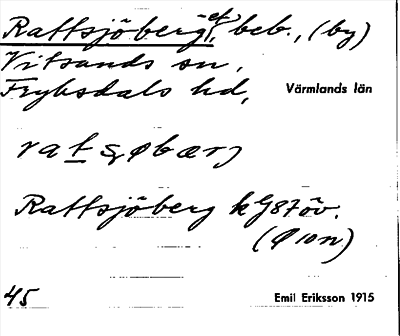 Rattsjöberg, -et, beb., (by)
Vitsands sn,
Fryksdals hd, Värmlands län
Rattsjöberg kG87öv.
(Ø10n)
45 Emil Eriksson 1915